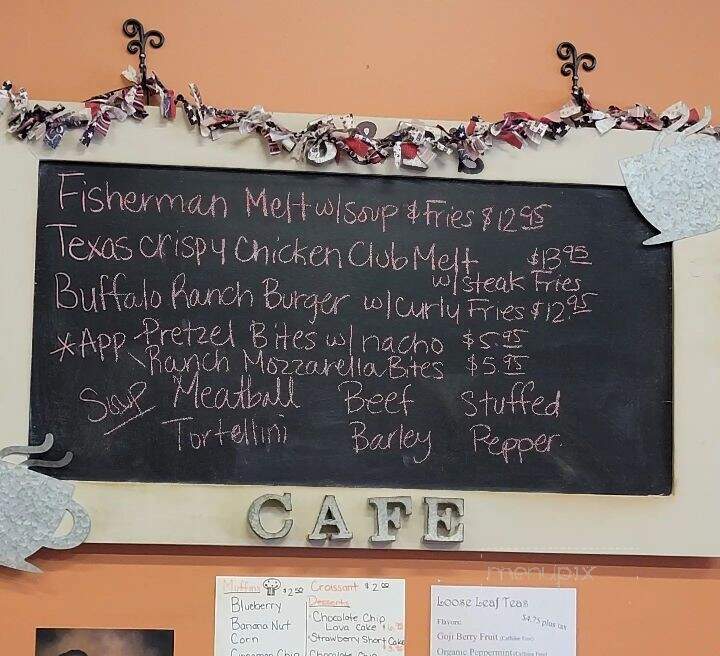 Fisherman Melt w/soup & Fries $12.95
Texas crispy Chicken Club Melt $13.95
w/steak Fries
Buffalo Ranch Burger w/curly Fries $12.95
*App Pretzel Bites w/nacho $5.95
Ranch Mozzarella Bites $5.95
Soup Meatball Beef Stuffed
Tortellini Barley Pepper
CAFE
menupix
Muffins $2.50 Croissant $2.00
Blueberry
Banana Nut
Corn
Cinnamon Chip
Desserts
Chocolate Chip
Lava Cake
Strawberry Short Cake
Chocolate Chip
Loose Leaf Teas
Flavors: $4.75 plus tax
Goji Berry Fruit (Caffeine Free)
Organic Peppermint (Caffeine Free)